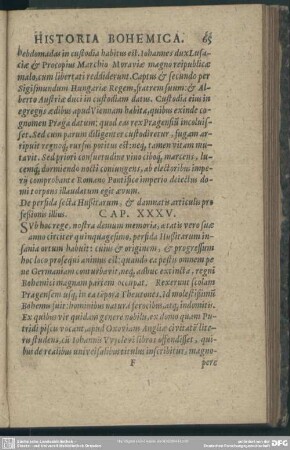 HISTORIA BOHEMICA. 65
hebdomadas in custodia habitus est. Iohannes dux Lusa-
ciæ & Procopius Marchio Moraviæ magno reipublicæ
malo, eum libertati reddiderunt. Captus & secundo per
Sigismundum Hungariæ Regem, fratrem suum: & Al-
berto Austriæ duci in custodiam datus. Custodia eius in
egregijs ædibus apud Viennam habita, quibus exinde co-
gnomen Praga datum: quod eas rex Pragensis incoluis-
set. Sed cum parum diligenter custodiretur, fugam ar-
ripuit regnoq, rursus potitus est: neq, tamen vitam mu-
tavit. Sed priori consuetudine vino ciboq, marcens, lu-
cemq, dormiendo nocti coniungens, ab electoribus impe-
rij comprobante Romano Pontifice imperio deiectus do-
mi torpens illaudatum egit ævum.
De perfida secta Hussitarum, & damnatis articulis pro
fessionis illius.
CAP. XXXV.
SVb hoc rege, nostra demum memoria, ætatis vero suæ
anno circiter quinquagesimo, perfida Hussitarum in-
sania ortum habuit: cuius & originem, & progressum
hoc loco prosequi animus est: quando ea pestis omnem pe
ne Germaniam conturbavit, neq, adhuc extincta, regni
Bohemici magnam partem occupat. Rexerunt scolam
Pragensem usq, in ea tẽpora Theutones. Id molestissimũ
Bohemis fuit: hominibus natura ferocibus, atq, indomitis.
Ex quibus vir quidam genere nobilis, ex domo quam Pu-
tridi piscis vocant, apud Oxoniam Angliæ civitatẽ lite-
ris studens, cũ Iohannis Vvyclevi libros offendisset, qui-
bus de realibus universalibus titulus inscribitur, magno-
F pere